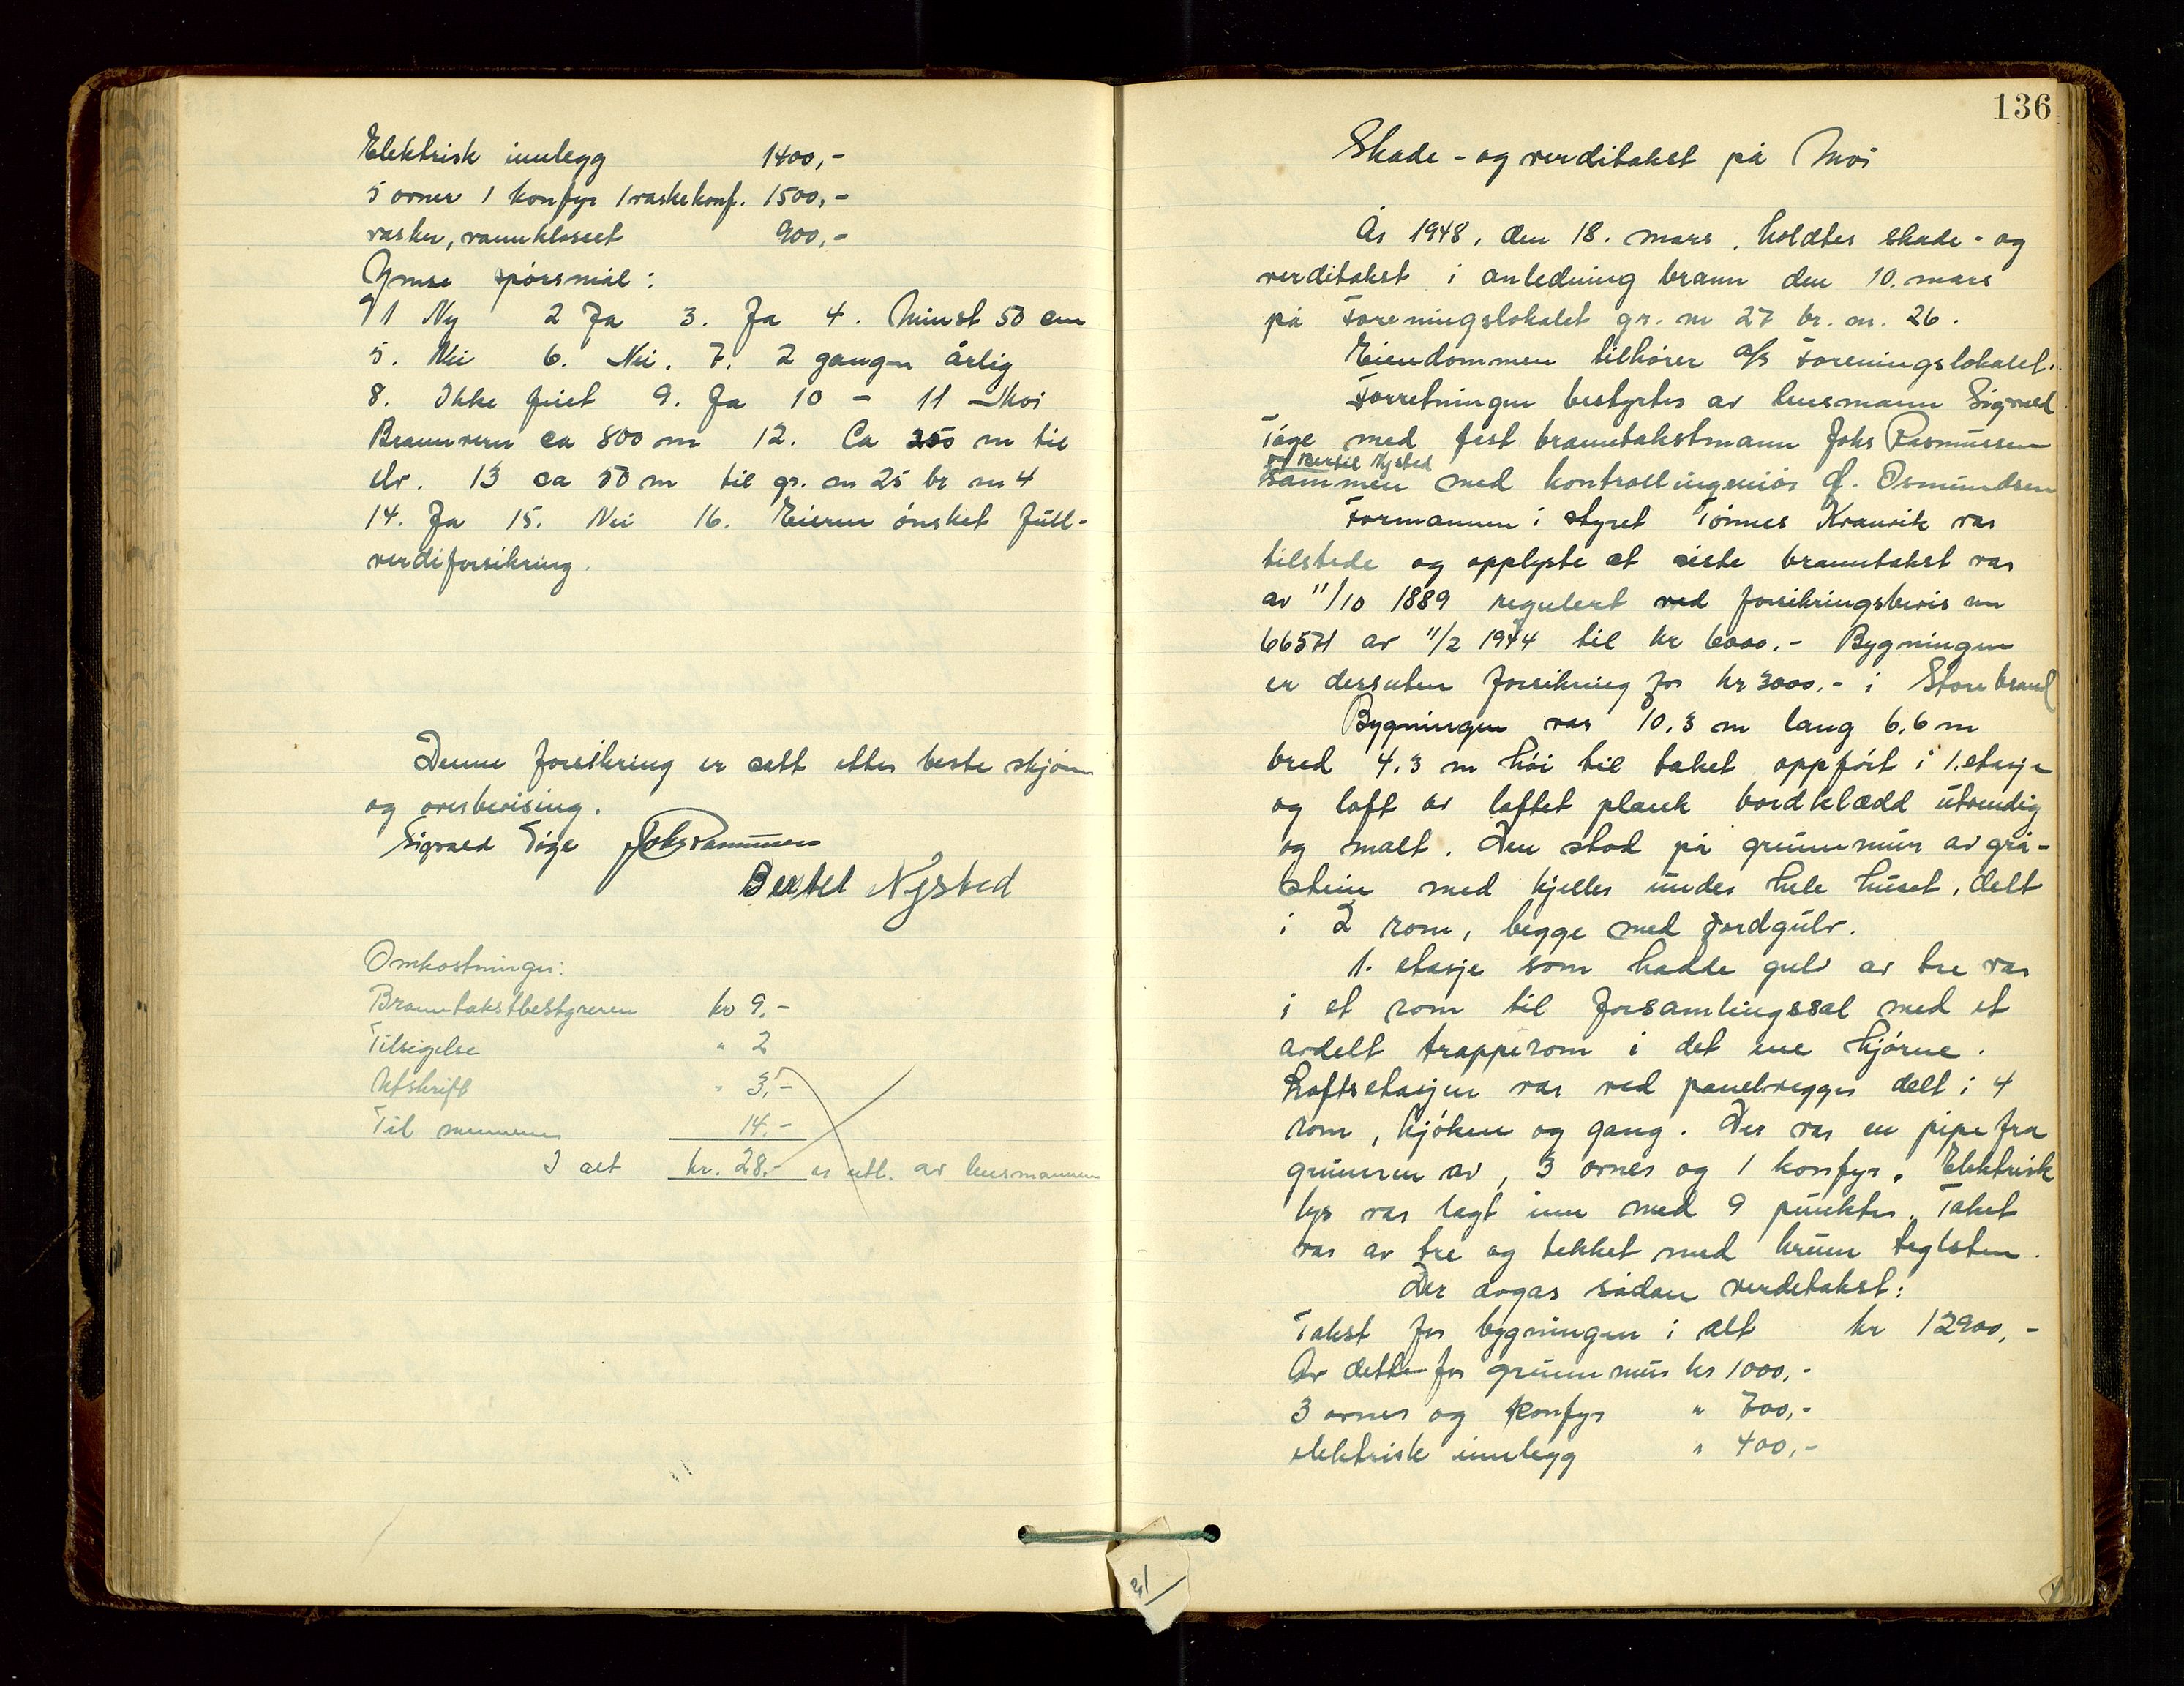 Elektrisk innlegg 1400,-
5 ovner 1 komfyr 1 vaskekomf. 1500,-
vasker, vannkloseet 900,-
Ymse spørsmål:
1 Ny 2 Ja 3. Ja 4. Minst 50 cm
5. Nei 6. Nei. 7. 2 ganger årlig
8. Ikke feiet 9. Ja 10 - 11 Moi
Brannvern ca 800 m 12. Ca 250 m til
elv. 13 ca 50 m til gr. nr 25 br nr 4
14. Ja 15. Nei 16. Eieren ønsket full-
verdiforsikring.
Denne forsikring er satt etter beste skjønn
og overbevising.
Sigvald Tøge Johs Rasmussen
Bertel Nysted
Omkostninger:
Branntakstbestyreren kr 9.-
Tilsigelse " 2
Utskrift " 3,-
Til mennene 14.-
I alt kr. 28.- er utl. av lensmannen
136
Skade - og verditakst på Moi
År 1948, den 18. mars, holdtes skade - og
verditakst i anledning brann den 10. mars
på Foreningslokalet gr. nr 27 br. nr. 26.
Eiendommen tilhører a/s Foreningslokalet.
Forretningen bestyrtes av lensmann Sigvald
Tøge med fast branntakstmann Johs Rasmussen
og Bertel Nysted
sammen med kontrollingeniør O. Osmundsen
Formannen i styret Tønnes Kranvik var
tilstede og opplyste at siste branntakst var
av 11/10 1889 regulert ved forsikringsbevis nr
66571 av 11/2 1944 til kr 6000.- Bygningen
er dersuten forsikring for kr 3000.- i Storebrand
Bygningen var 10.3 m lang 6,6 m
bred 4.3 m høi til taket oppført i 1. etasje
og loft av laftet plank bordklædd utvendig
og malt. Den stod på grunnmur av grå-
stein med kjeller under hele huset, delt
i 2 rom, begge med jordgulv.
1. etasje som hadde gulv av tre var
i et rom til forsamlingssal med et
avdelt trapperom i det ene hjørne.
Loftsetasjen var ved panelvegger delt i 4
rom, kjøken og gang. Der var en pipe fra
grunnen av, 3 ovner og 1 komfyr. Elektrisk
lys var lagt inn med 9 punkter. Taket
var av tre og tekket med krum teglsten.
Der avgas sådan verdetakst:
Takst for bygningen i alt kr 12900,-
Av dette for grunnmur kr 1000,-
3 ovner og komfyr " 700,-
elektrisk innlegg " 400,-